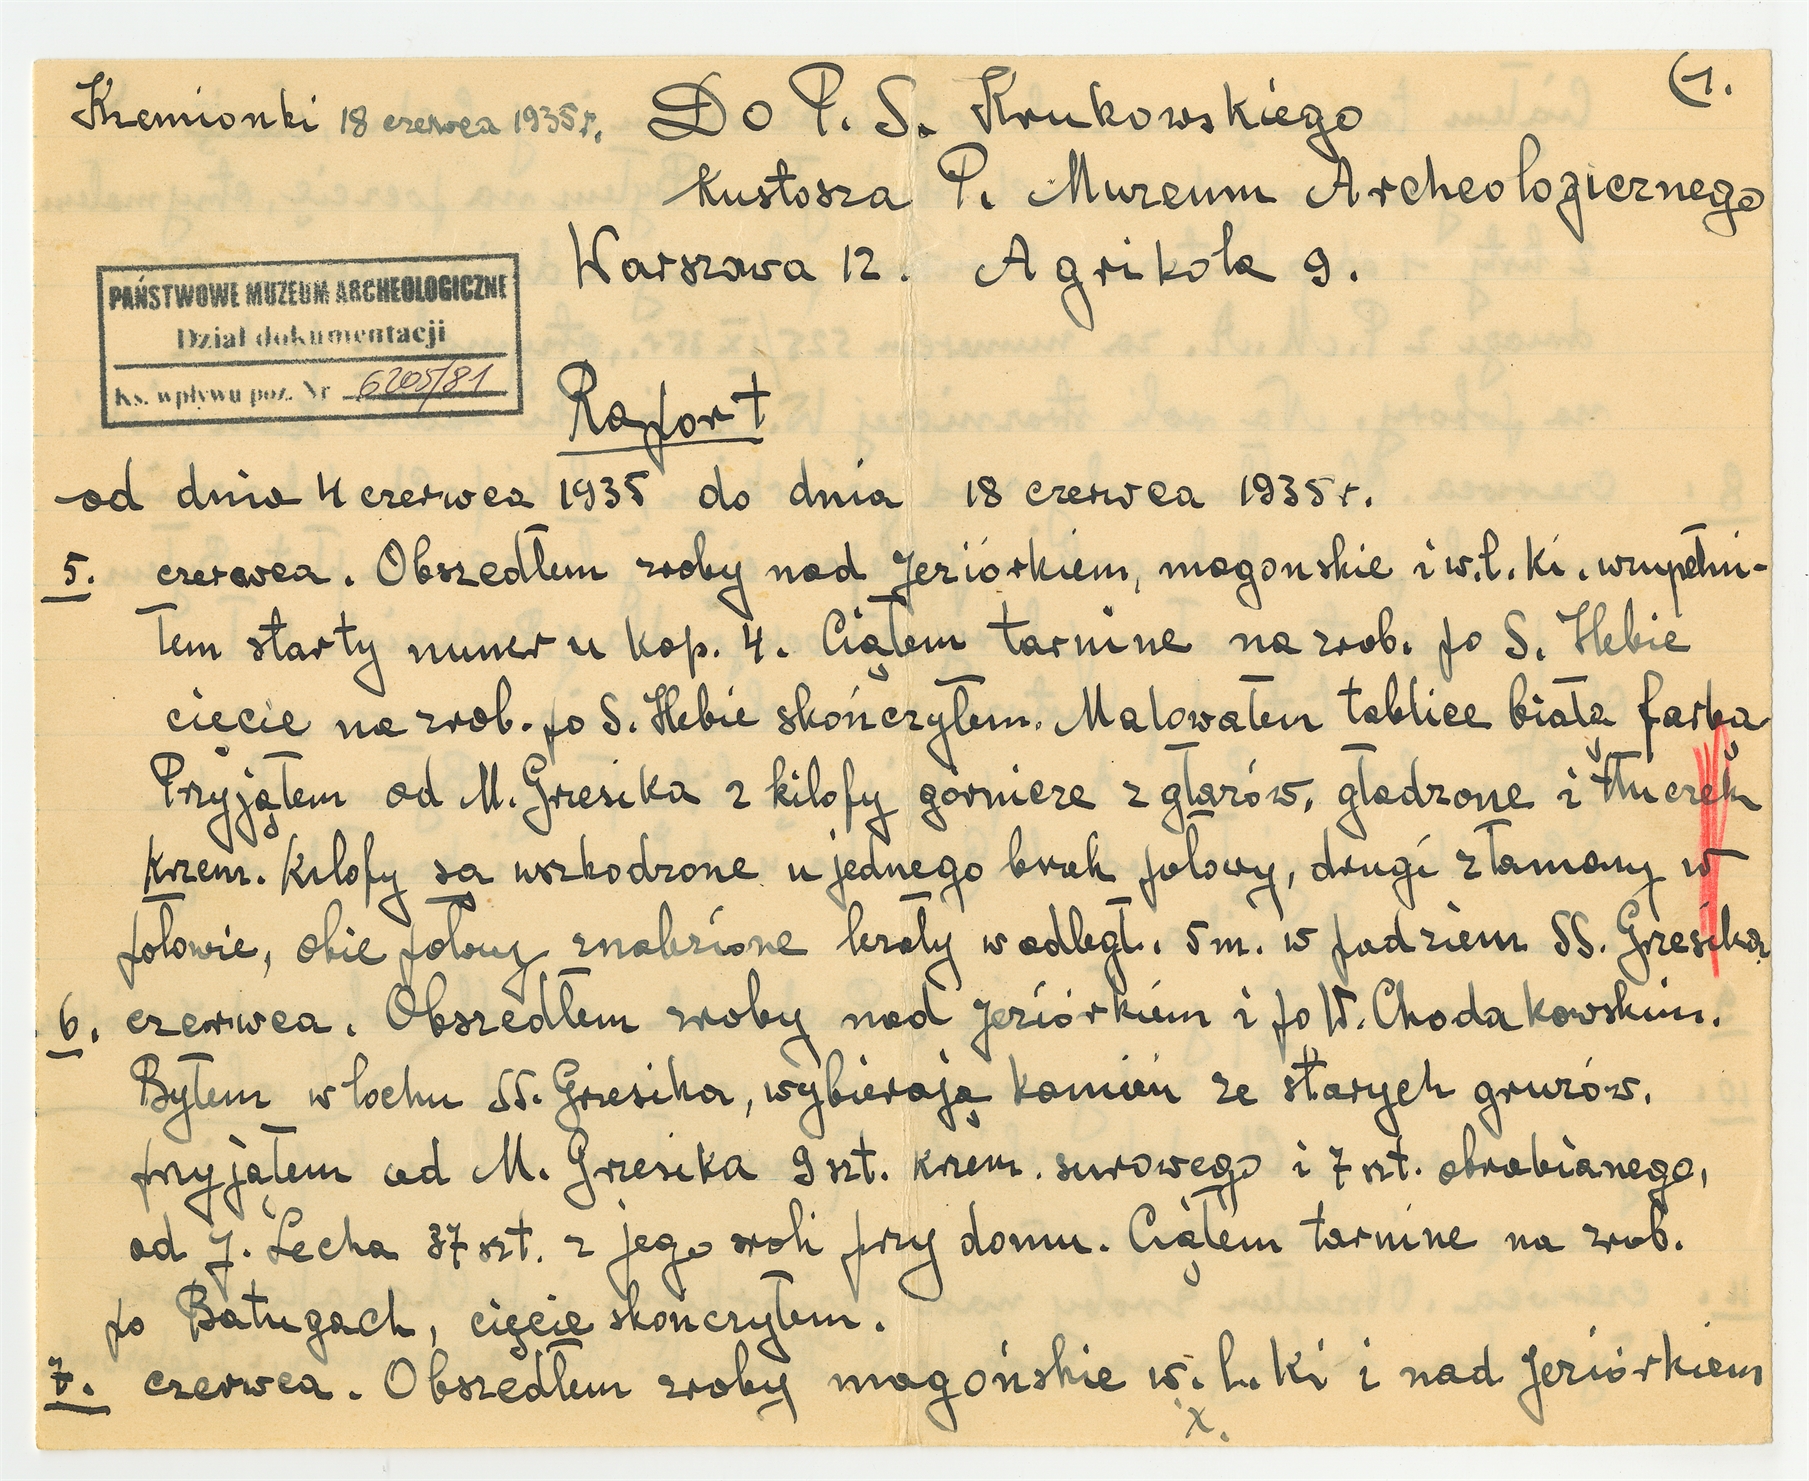 (1.
Krzemionki 18 czerwca 1935r. Do P. S. Krukowskiego
Kustosza P. Muzeum Archeologicznego
Warszawa 12. Agrikola 9.
PAŃSTWOWE MUZEUM ARCHEOLOGICZNE
Dział dokumentacji
Ks. wpływu poz. Nr 6205/81
Raport
od dnia 4 czerwca 1935 do dnia 18 czerwca 1935r.
5. czerwca. Obszedłem zroby nad Jeziórkiem, magonskie i w.l.ki. wzupełni-
łem starty numer u kop. 4. Ciąłem tarnine na zrob. po S. Hebie
cięcie na zrob. po S. Hebie skończyłem. Malowałem tablice białą farbą
Przyjąłem od M. Grzesika 2 kilofy górnicze z głazów, gładzone i tłuczek
krzem. Kilofy są uszkodzone u jednego brak połowy, drugi złamany w
połowie, obie połowy znalezione leżały w odległ. 5 m. w podziem SS. Grzesika
6. czerwca. Obszedłem zroby nad Jeziórkiem i po W. Chodakowskim.
Byłem w lochu SS. Grzesika, wybierają kamień ze starych gruzów.
przyjąłem od M. Grzesika 9 szt. krzem. surowego i 7 szt. obrabianego,
od J. Lecha 37 szt. z jego roli przy domu. Ciąłem tarnine na zrob.
po Baługach, cięcie skonczyłem.
7. czerwca. Obszedłem zroby magońskie w. l. ki i nad Jeziórkiem
x.